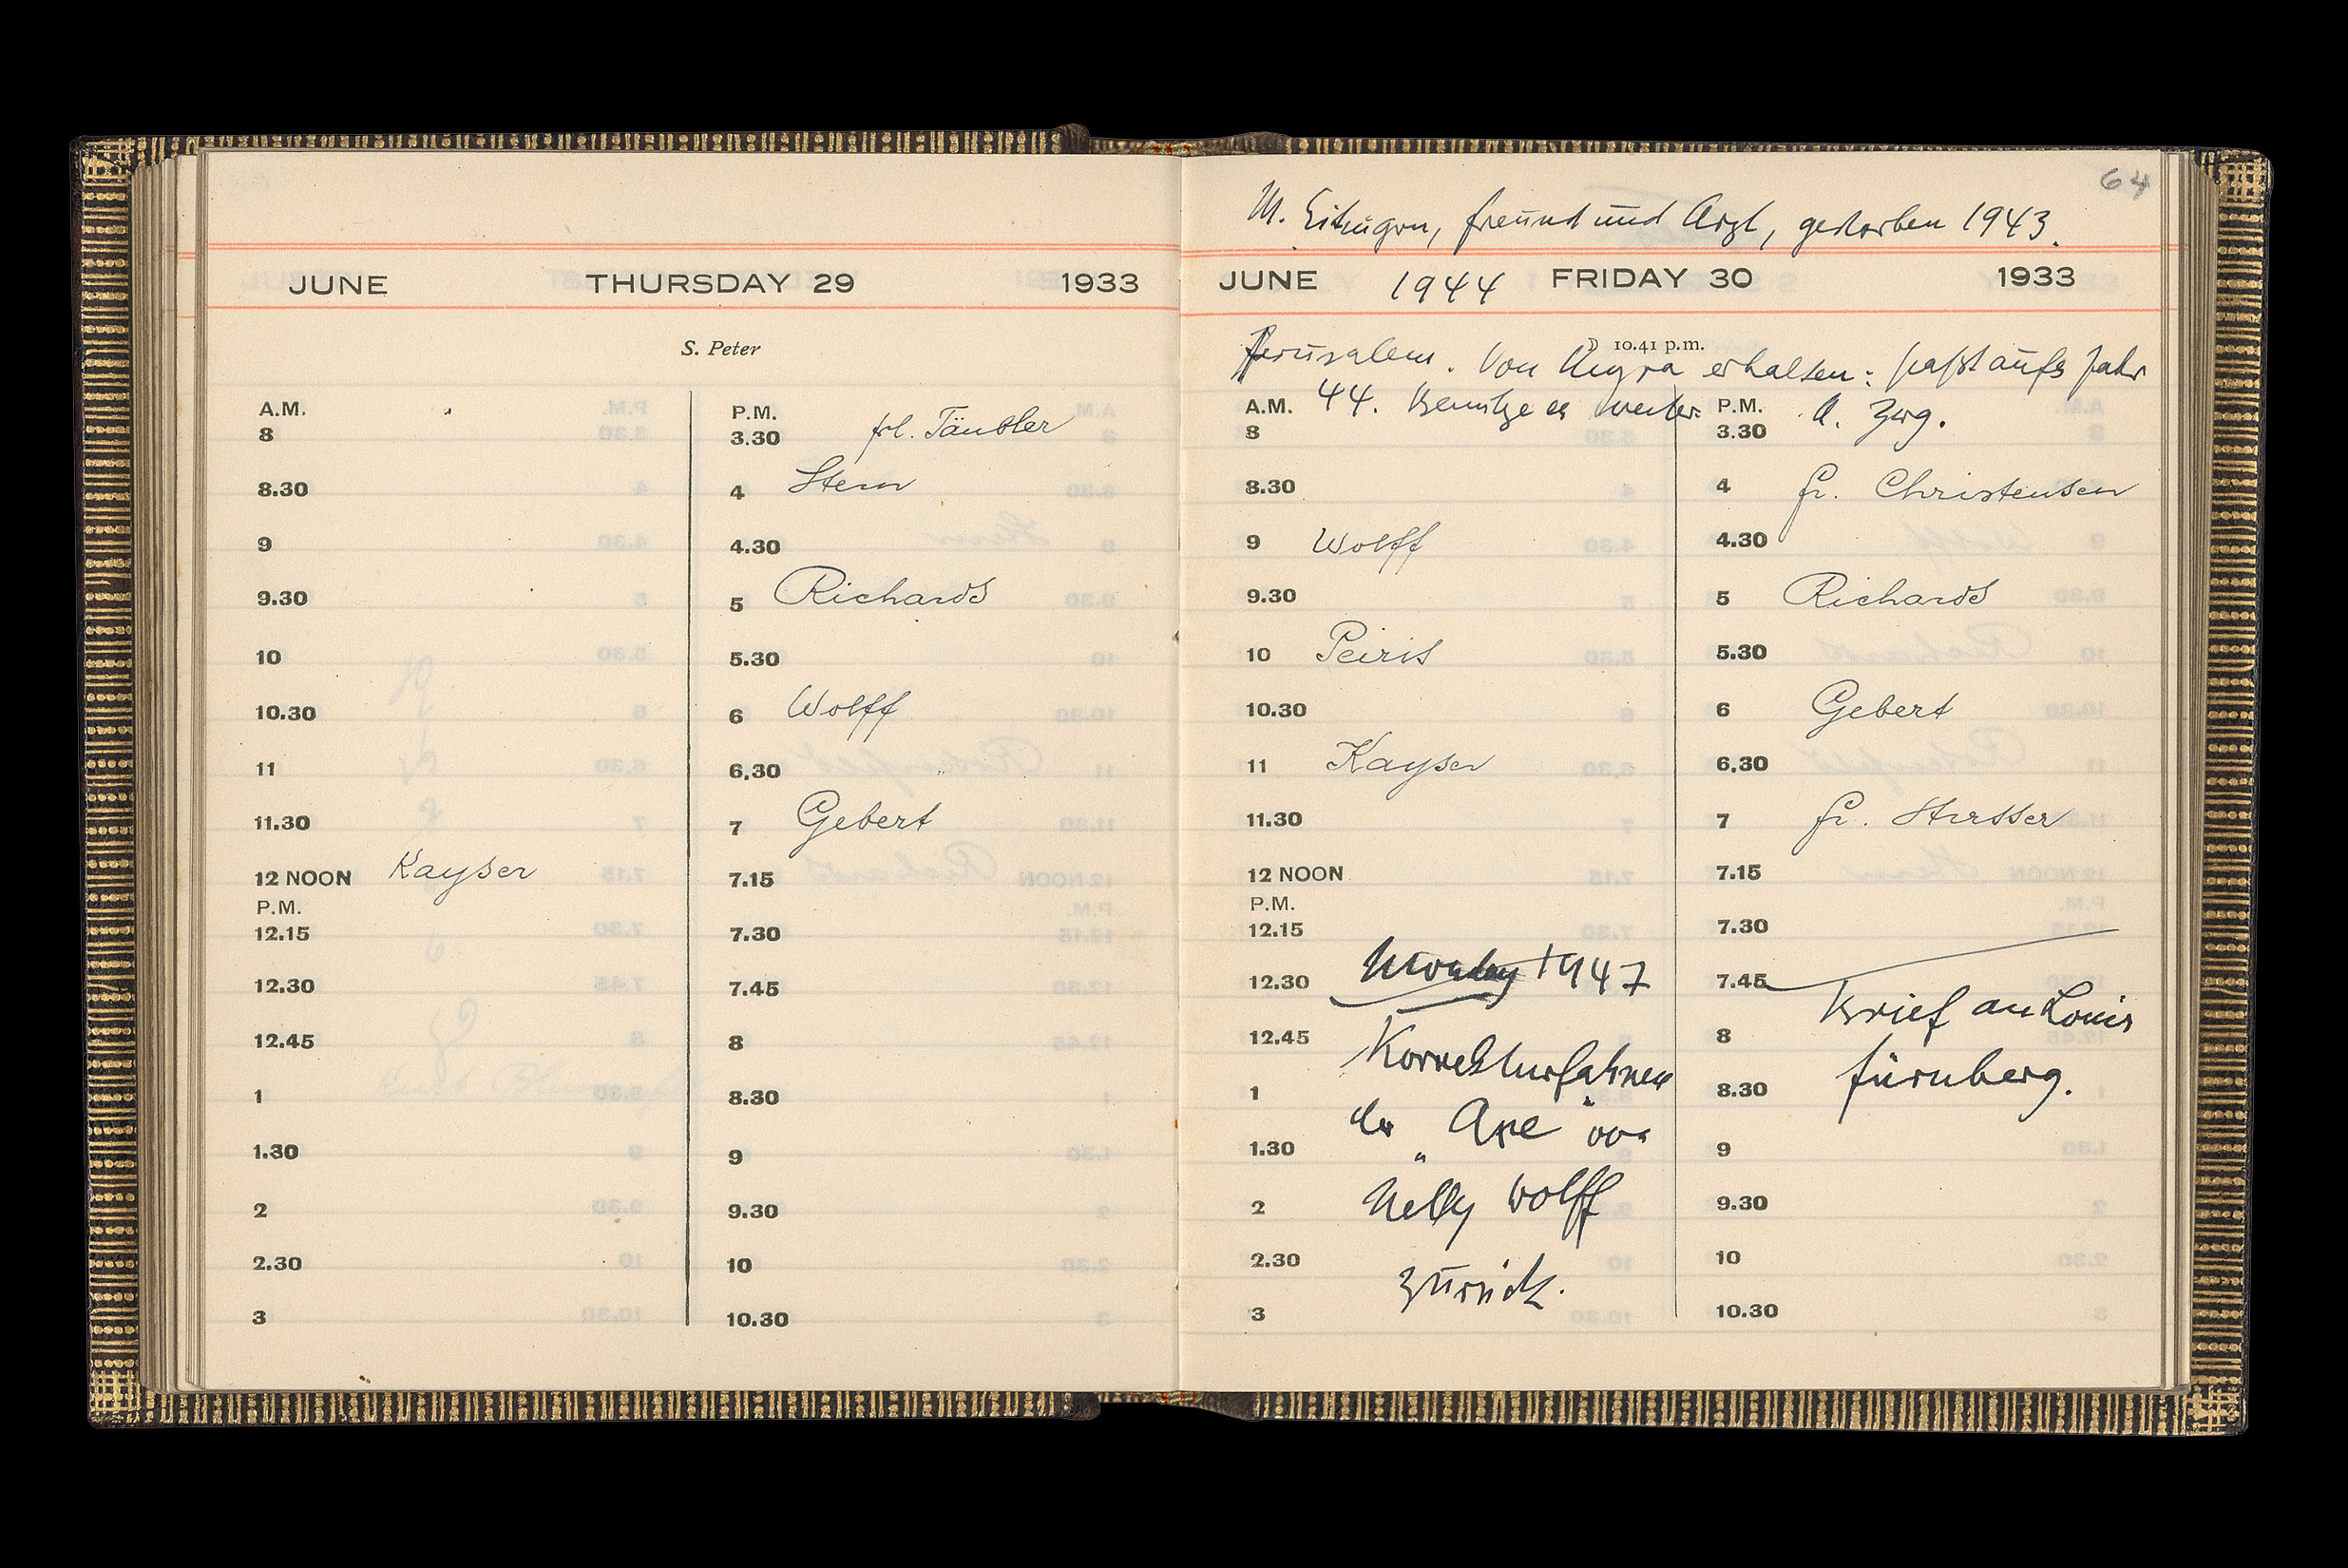 JUNE THURSDAY 29 1933
S. Peter
A.M.
8
8.30
9
9.30
10
10.30
11
11.30
12 NOON Kayser
P.M.
12.15
12.30
12.45
1
1.30
2
2.30
3
P.M.
3.30 frl. Täubler
4 Stern
4.30
5 Richards
5.30
6 Wolff
6.30
7 Gebert
7.15
7.30
7.45
8
8.30
9
9.30
10
10.30
64
M. Eitingon, Freund und Arzt, gestorben 1943.
JUNE 1944 FRIDAY 30 1933
☽ 10.41 p.m.
Jerusalem. Von erhalten: paßt aufs Jahr
44. Benutze es weiter. A. Zwg.
A.M.
8
8.30
9 Wolff
9.30
10 Peiris
10.30
11 Kayser
11.30
12 NOON
P.M.
12.15
12.30 Monday 1947
12.45 Korrekturfahnen
1
der „Axe" von
1.30
2 Nelly Wolff
2.30 zurück.
3
P.M.
3.30
4 Fr. Christensen
4.30
5 Richards
5.30
6 Gebert
6.30
7 Fr.
7.15
7.30
7.45
Brief an Louis
8
Fürnberg.
8.30
9
9.30
10
10.30